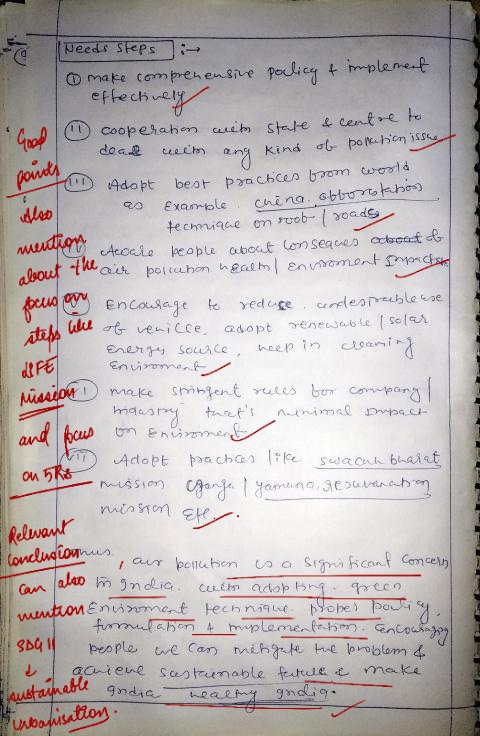 Needs Steps :→
① make comprehensive policy & implement
effectively
II cooperation with state & centre to
deal with any kind of pollution issue
III Adopt best practices from world
as example. china. afforestation
technique on roof / roads
Aware people about conseques about of
air pollution health / Enviroment Impacts
Encourage to reduce. undesirable use
of vehicle. adopt renewable / solar
energy source. keep in cleaning
Enviroment
make stringent rules for company /
industry that's minimal impact
on Enviroment
VII Adopt practices like swachh bharat
mission Ganga / yamuna. resuvenation
mission Etc.
Thus, air pollution is a significant concern
in India. with adopting. green
Enviroment technique. proper policy.
formulation & implementation. Encouraging
people we can mitigate the problem &
achieve sustainable future & make
India healthy India.
Good
points
Also
mention
about the
focus on
steps like
LIFE
Mission
and focus
on 5Rs
Relevant
Conclusion
can also
mention
SDG 11
↓
sustainable
Urbanisation.